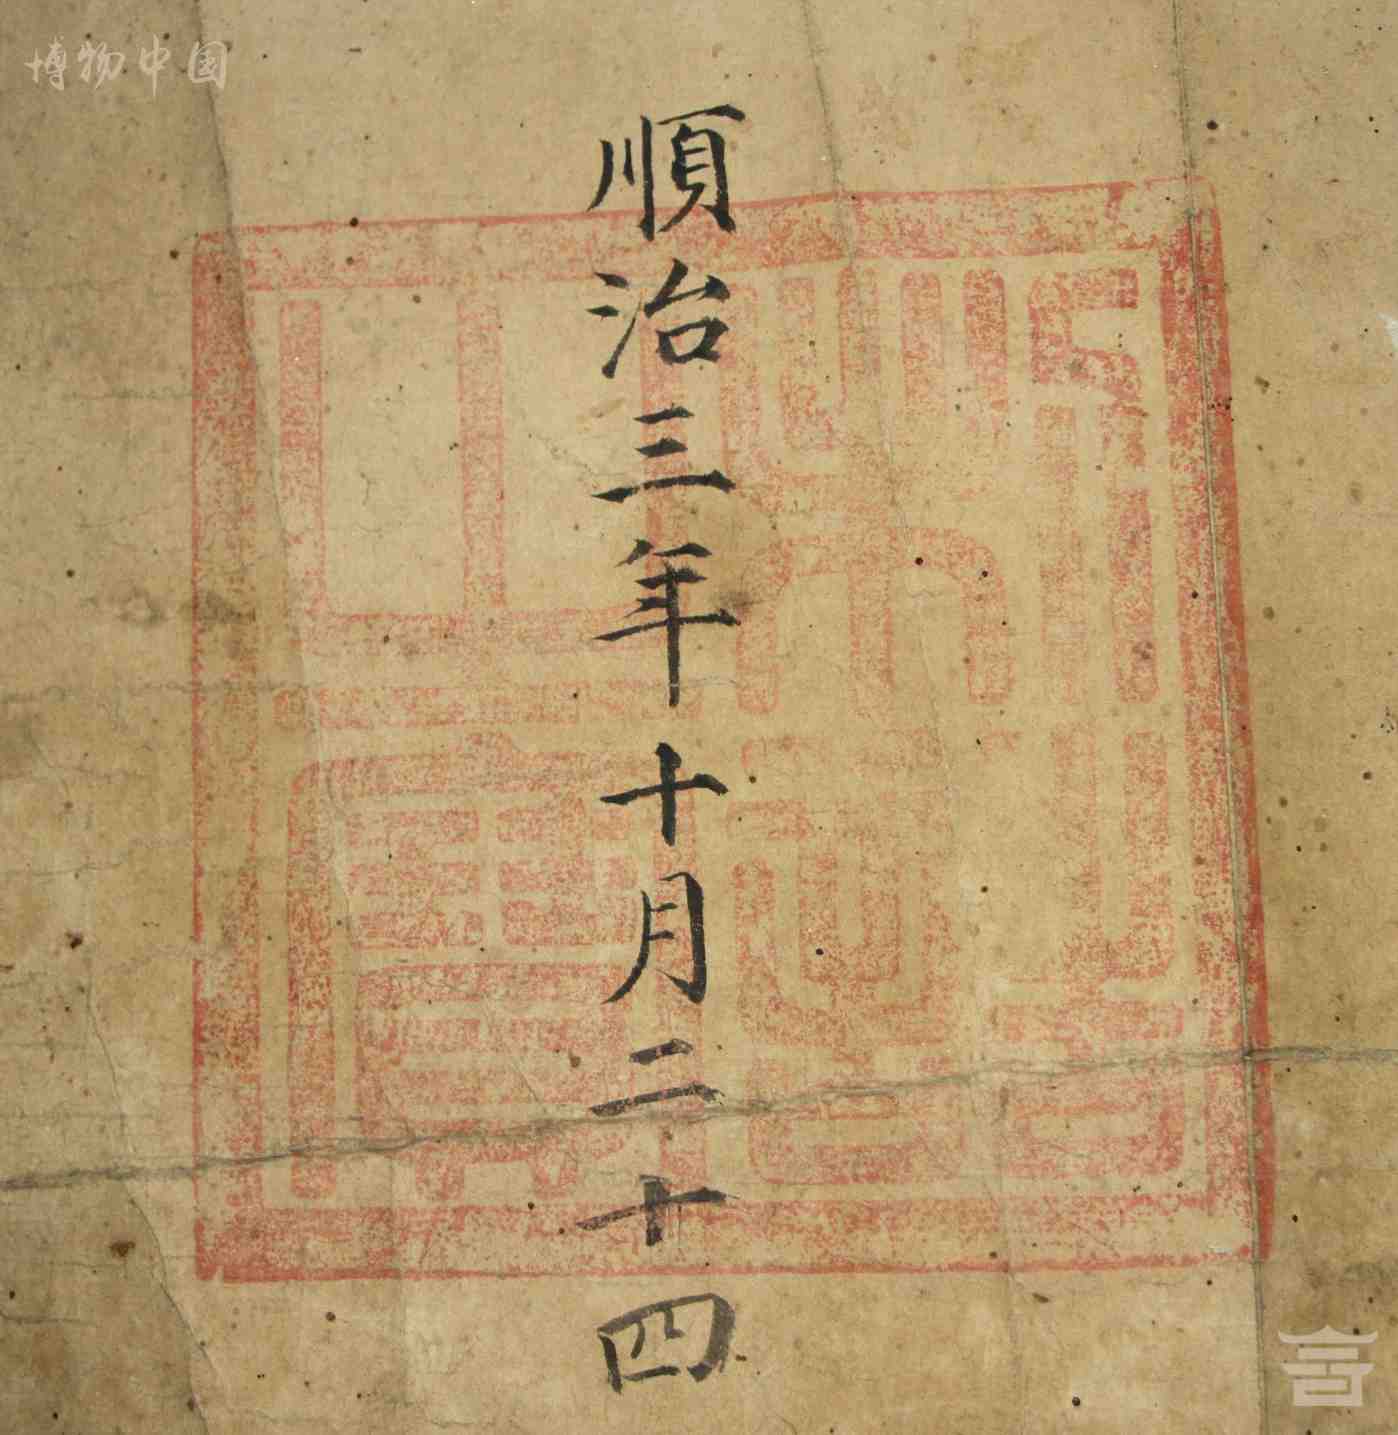 博物中国
順治三年十月二十四